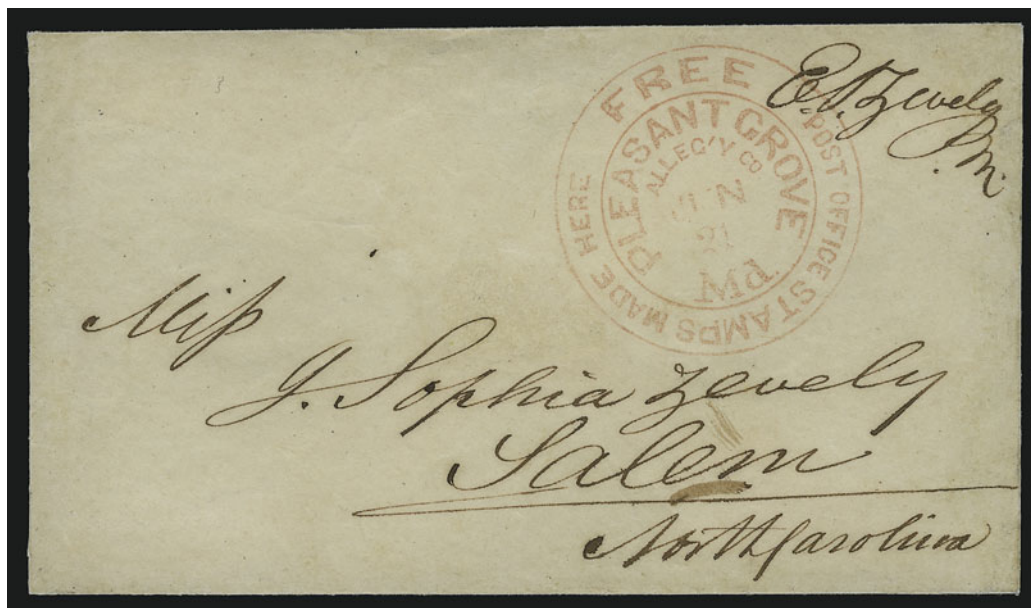 FREE
POST OFFICE STAMPS MADE HERE
PLEASANT GROVE
ALLEG'Y CO
JUN
21
Md.
E. S. Zevely
P.M.
Miſs
J. Sophia Zevely
Salem
North Carolina